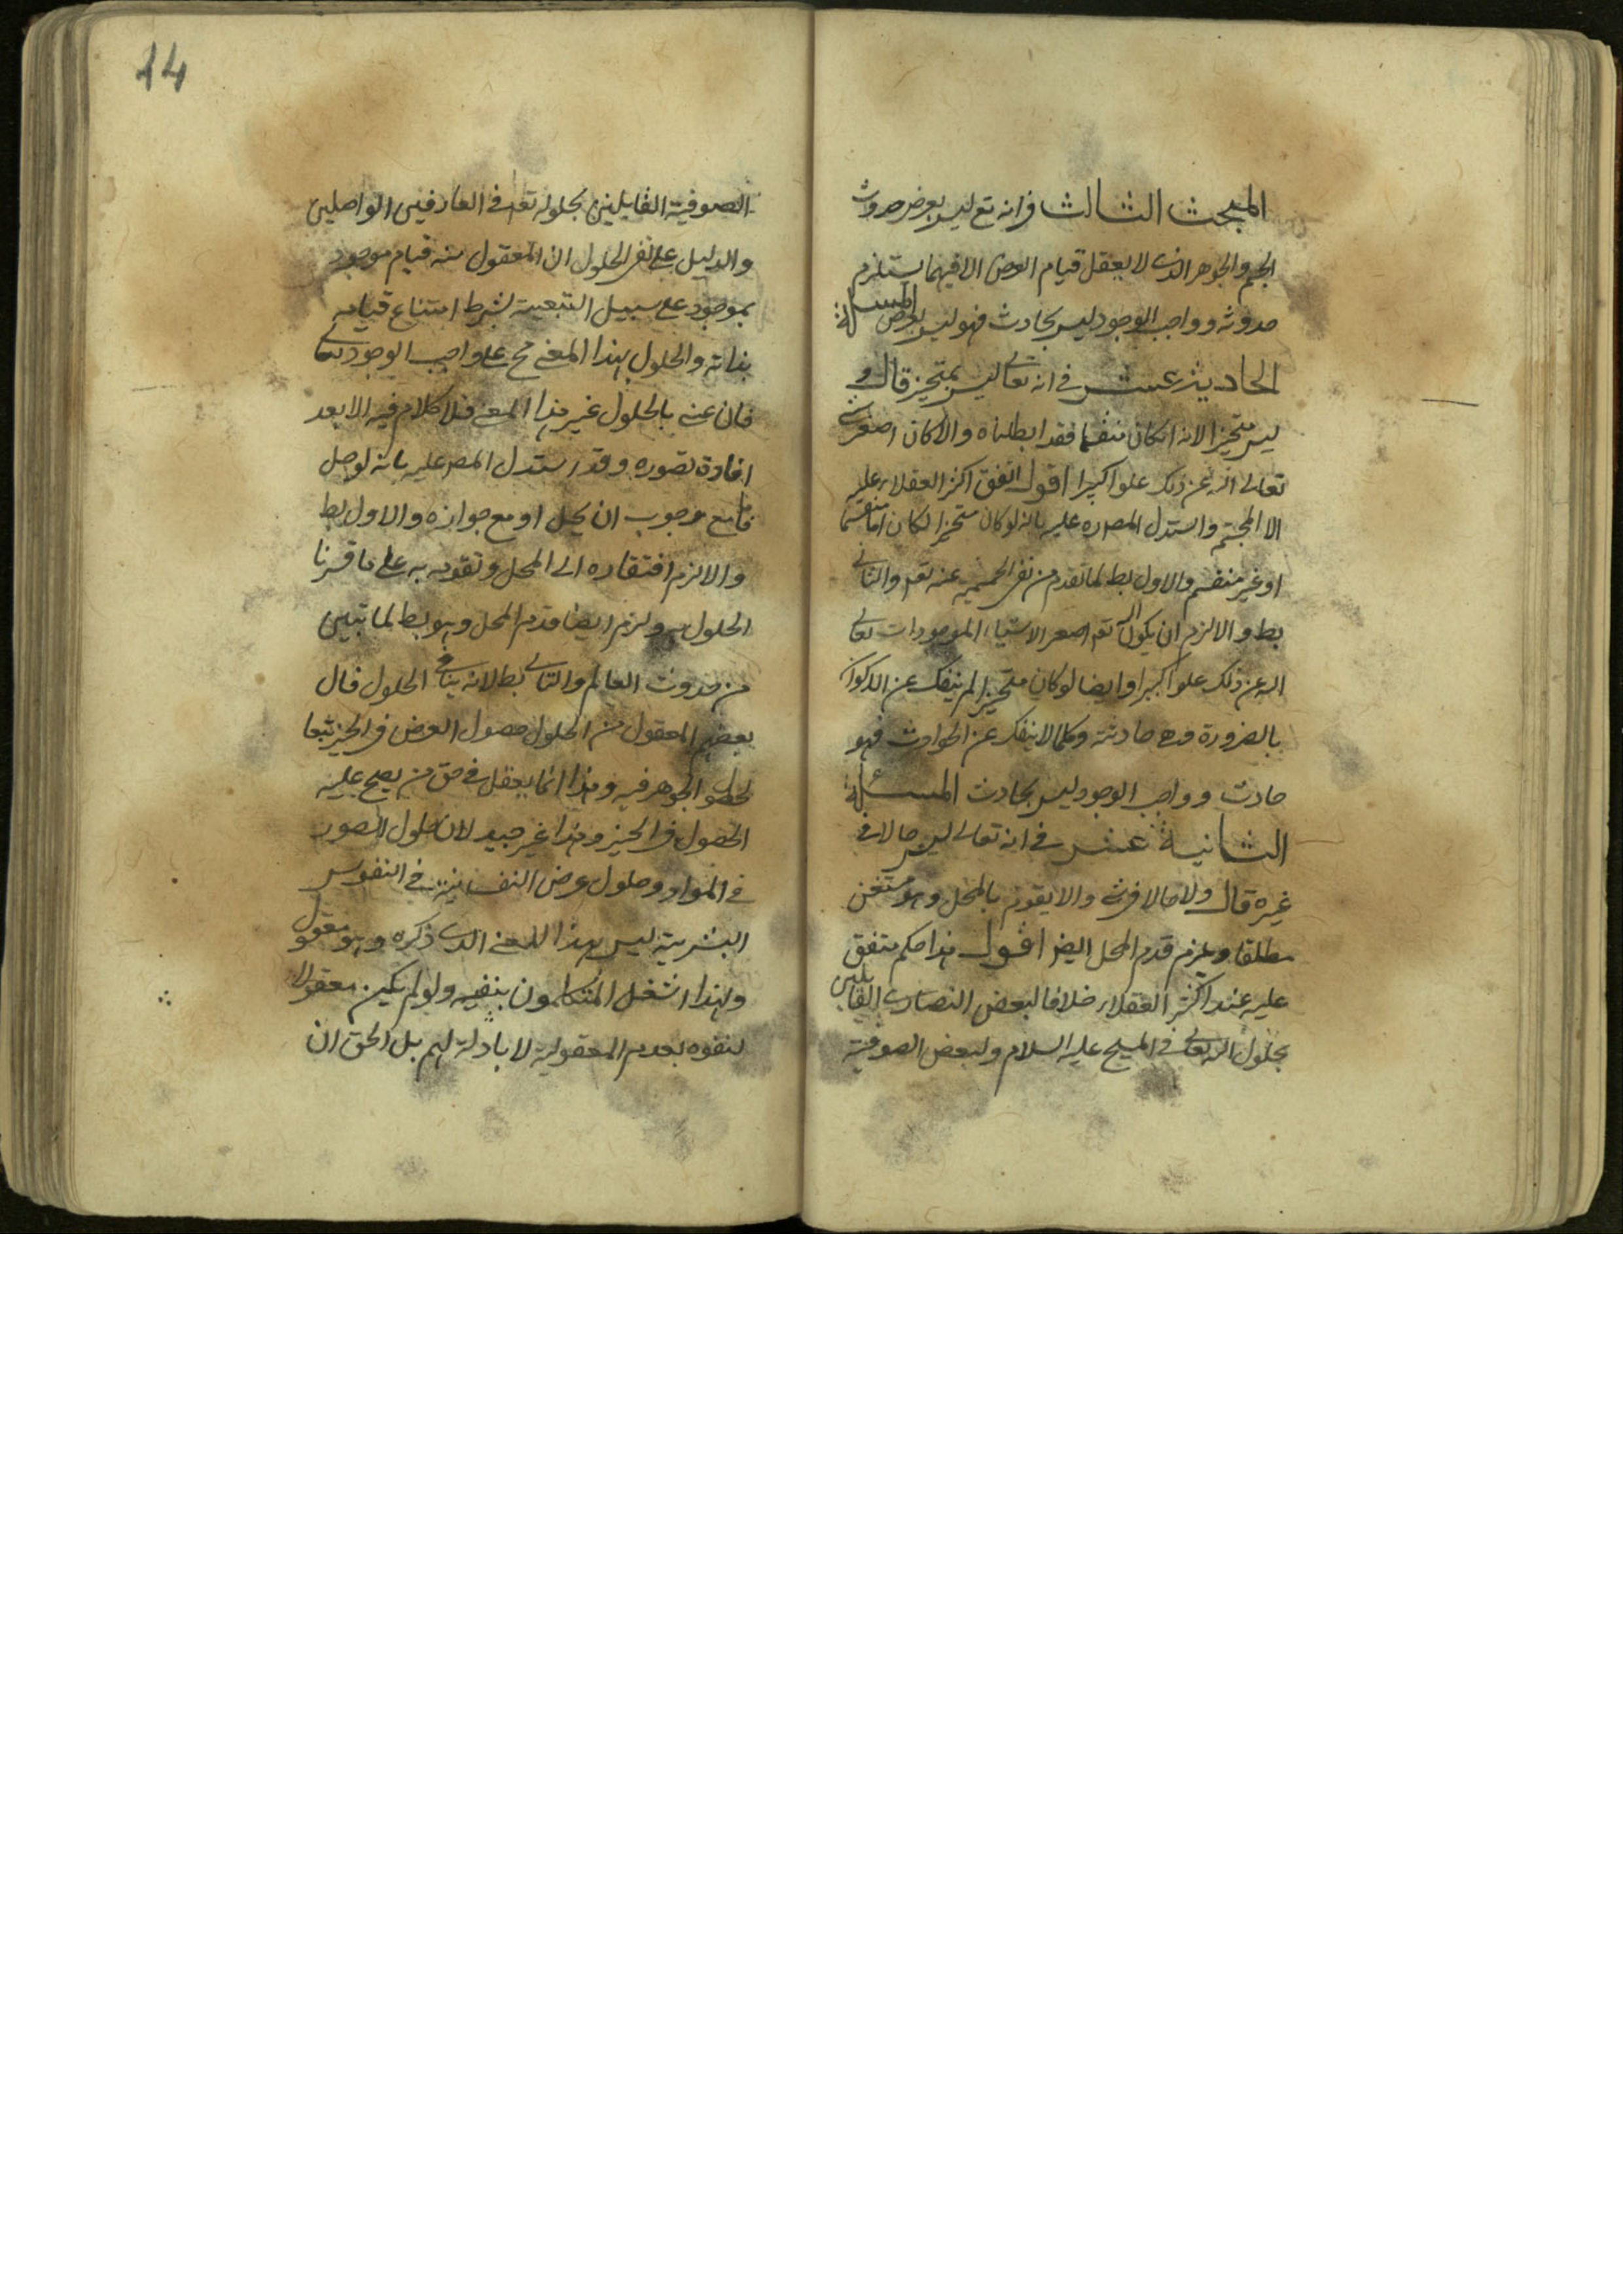 المبحث الثالث في انه تع ليس بعرض حدوث
الجسم والجوهر الذى لا يعقل قيام العرض الا فيهما يستلزم
حدوثه وواجب الوجود ليس بحادث فهو ليس بعرض المسئلة
الحادية عشر في انه تعالى ليس بمتحيز قال و
ليس متحيزا لانه ان كان منقسما فقد ابطلناه والا كان اصغر شئ
تعالى الله عن ذلك علوا كبيرا اقول اتفق اكثر العقلاء عليه
الا المجسم واستدل المص ره عليه بانه لو كان متحيزا لكان اما منقسما
او غير منقسم والاول بط لما تقدم من نفى الجسمية عنه تع والثانى
بط والا لزم ان يكون الله تع اصغر الاشياء الموجودات تعالى
الله عن ذلك علوا كبيرا وايضا لو كان متحيزا لم ينفك عن الاكوان
بالضرورة وهى حادثة وكلما لا ينفك عن الحوادث فهو
حادث وواجب الوجود ليس بحادث المسئلة
الثانية عشر في انه تعالى ليس حالا في
غيره قال ولا حالا في شئ والا يقوم بالمحل وهو مستغن
مطلقا ويلزم قدم المحل ايضا اقول هذا حكم متفق
عليه عند اكثر العقلاء خلافا لبعض النصارى القايلين
بحلول الله تعالى في المسيح عليه السلام ولبعض الصوفية
14
الصوفية القايلين بحلوله تعالى في العارفين الواصلين
والدليل على نفى الحلول ان المعقول منه قيام موجود
بموجود على سبيل التبعية بشرط امتناع قيامه
بذاته والحلول بهذا المعنى مح على واجب الوجود تعالى
فان عنى بالحلول غير هذا المعنى فلا كلام فيه الا بعد
افادة تصوره وقد استدل المص عليه بانه لو حل
فاما مع وجوب ان يحل او مع جوازه والاول بط
والا لزم افتقاره الى المحل وتقومه به على ما فسرنا
الحلول به ولزم ايضا قدم المحل وهو بط لما تبين
من حدوث العالم والثانى بط لانه ينافى الحلول قال
بعضهم المعقول من الحلول حصول العرض في الحيز تبعا
لحصول الجوهر فيه وهذا انما يعقل في حق من يصح عليه
الحصول في الحيز وهذا غير جيد لان حلول الصور
في المواد وحلول عرض النفسانية في النفوس
البشرية ليس بهذا المعنى الذى ذكره وهو معقول
ولهذا اشتغل المتكلمون بنفيه ولو لم يكن معقولا
لنفوه بعدم المعقولية لا بادلة لهم بل الحق ان